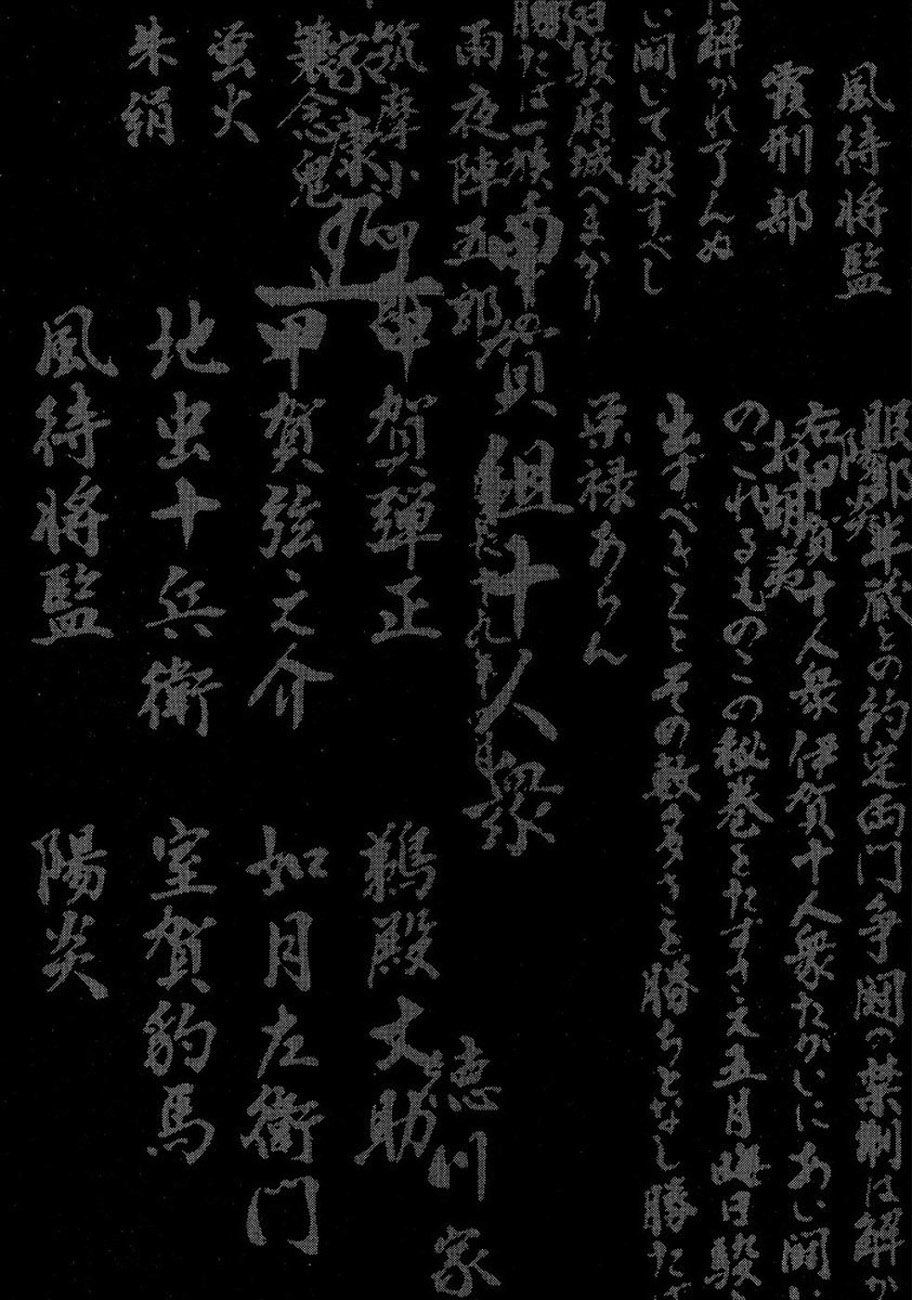 風待将監
霞刑部
は解かれ了んぬ
い闘いて殺すべし
日駿府城へまかり
勝たば一族
雨夜陣五郎
筑摩小四郎
蓑念鬼
家康
蛍火
朱絹
服部半蔵との約定両門争闘の禁制は解か
陽炎
右甲賀十人衆伊賀十人衆たがいにあい闘い
お胡夷
のこれるものこの秘巻をたずさえ五月晦日駿
出ずべきことその数多きを勝ちとなし勝たば
栄禄あらん
甲賀組十人衆
甲賀弾正
甲賀弦之介
地虫十兵衛
風待将監
鵜殿丈助
如月左衛門
室賀豹馬
陽炎
徳川家